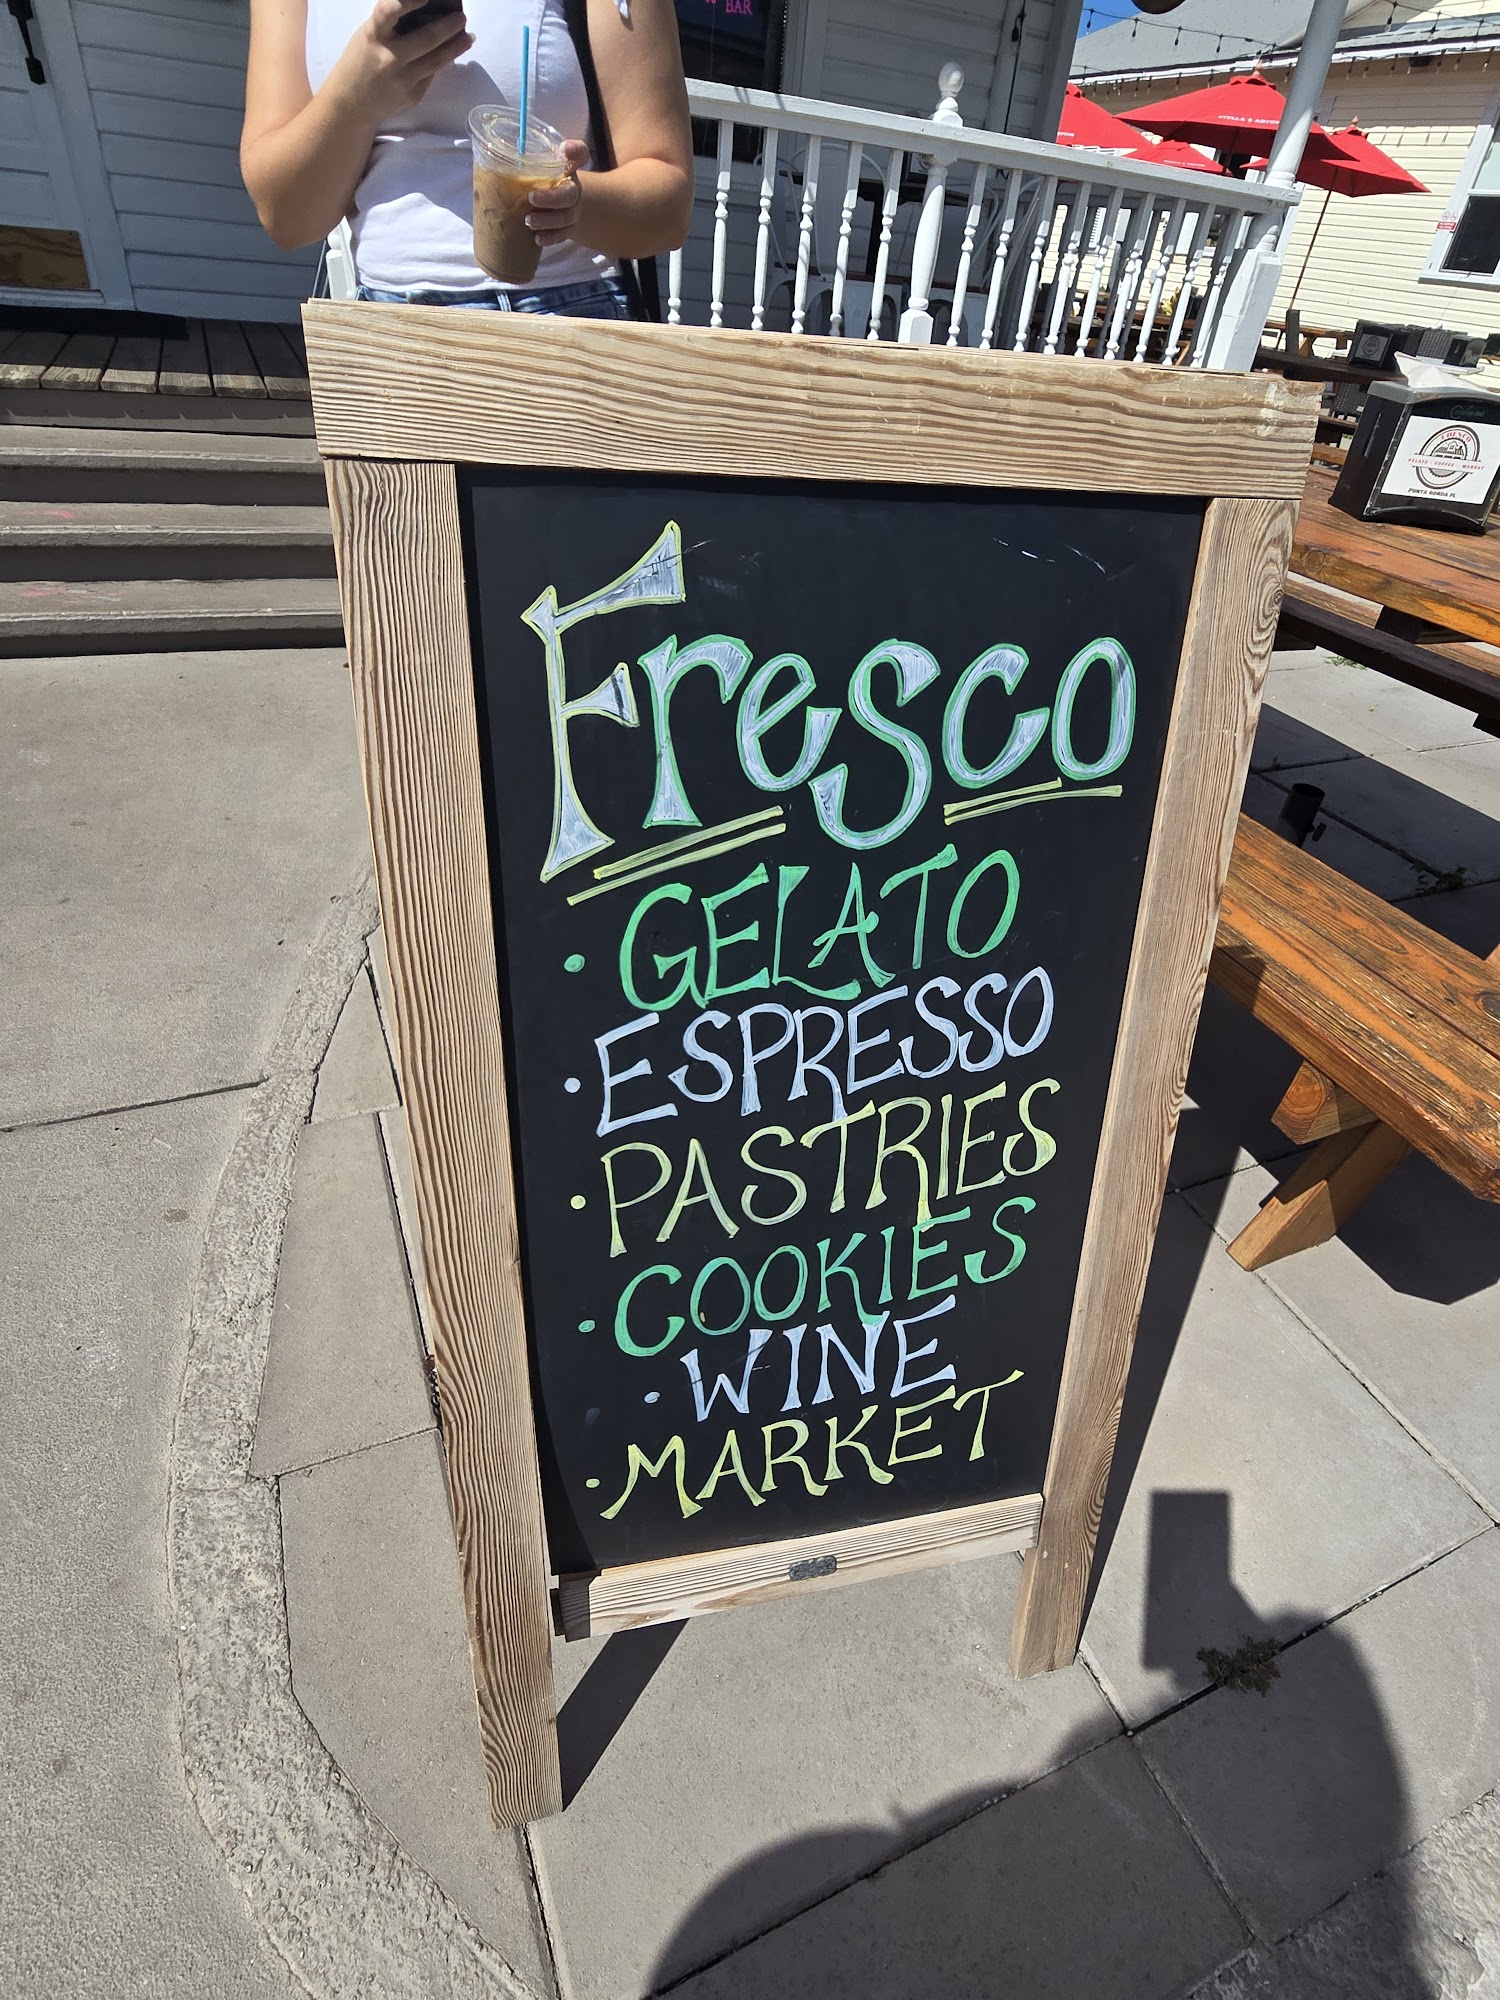 BAR
STELLA ARTOIS
Fresco
• GELATO
• ESPRESSO
• PASTRIES
• COOKIES
• WINE
• MARKET
FRESCO
GELATO • COFFEE • MARKET
PUNTA GORDA FL